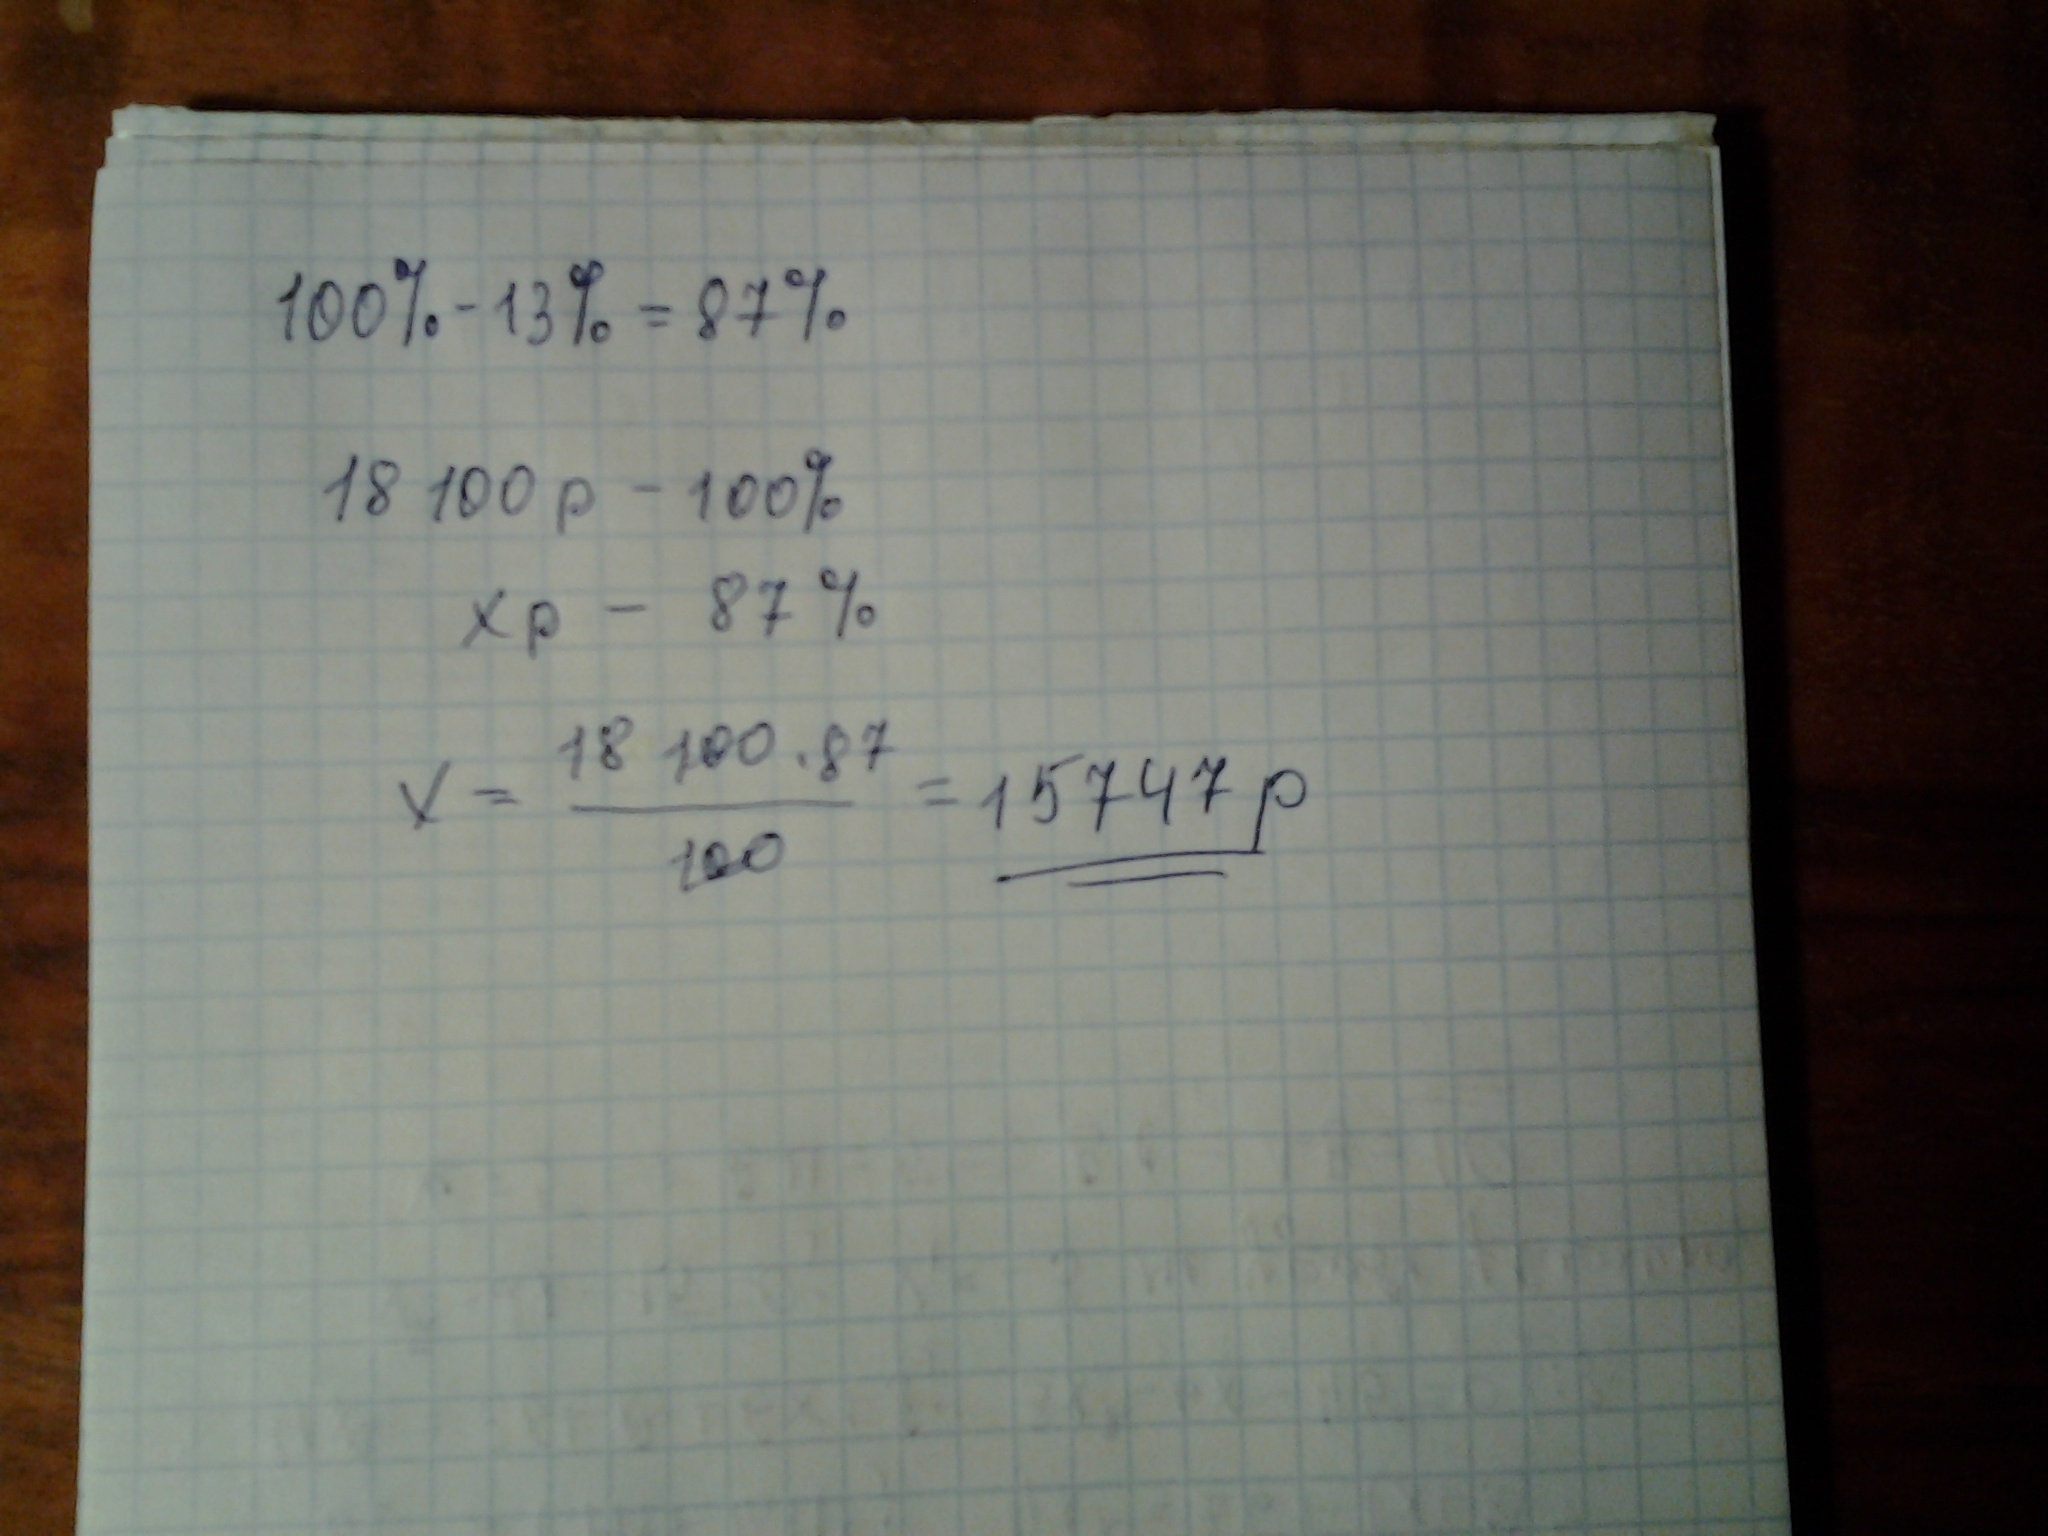 100% - 13% = 87%
18 100 р - 100%
х р - 87 %
х = 18 100 . 87 / 100 = 15747 р